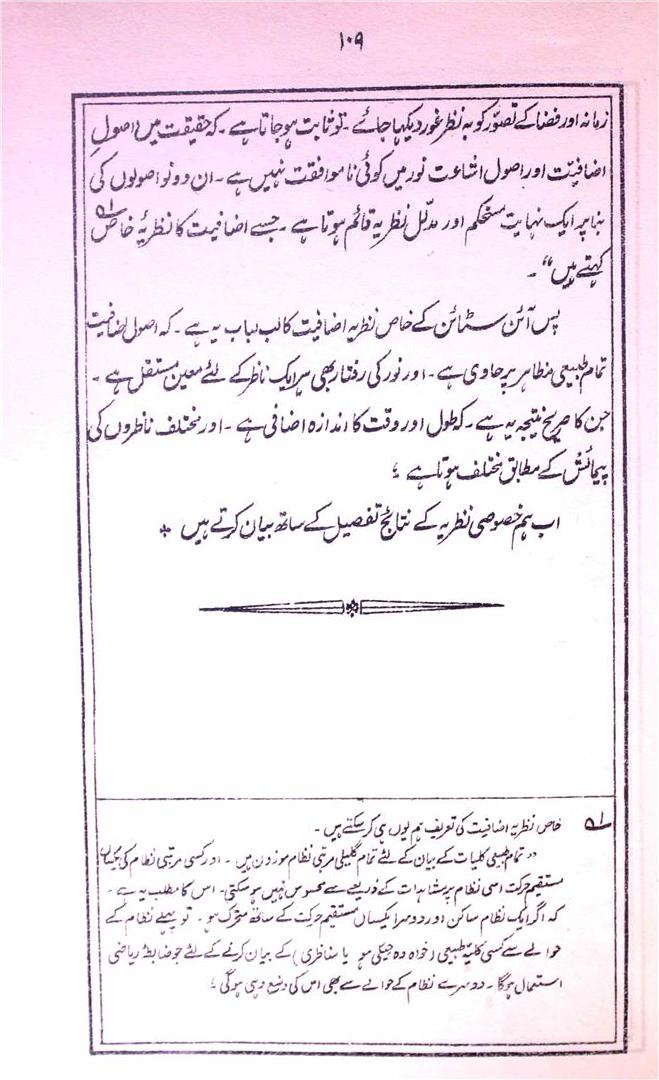 ۱۰۹
زمانہ اور فضا کے تصوّر کو بہ نظر غور دیکھا جائے ۔ تو ثابت ہو جاتا ہے ۔ کہ حقیقت میں اصولِ
اضافیت اور اصول اشاعت نور میں کوئی ناموافقت نہیں ہے ۔ ان دونو اصولوں کی
بنا پر ایک نہایت مستحکم اور مدلل نظریہ قائم ہوتا ہے ۔ جسے اضافیت کا نظریۂ خاص ؎۱
کہتے ہیں“ ۔
پس آئن سٹائن کے خاص نظریہ اضافیت کا لب لباب یہ ہے ۔ کہ اصول اضافیت
تمام طبیعی مظاہر پر حاوی ہے ۔ اور نور کی رفتار بھی ہر ایک ناظر کے لئے معین مستقل ہے ۔
جن کا صریح نتیجہ یہ ہے ۔ کہ طول اور وقت کا اندازہ اضافی ہے ۔ اور مختلف ناظروں کی
پیمائش کے مطابق مختلف ہوتا ہے ؛
اب ہم خصوصی نظریہ کے نتائج تفصیل کے ساتھ بیان کرتے ہیں *
؎۱ خاص نظریہ اضافیت کی تعریف ہم یوں بھی کر سکتے ہیں ۔
” تمام طبیعی کلیات کے بیان کے لئے تمام گلیلی مرتبی نظام موزون ہیں ۔ اور کسی مرتبی نظام کی یکساں
مستقیم حرکت اسی نظام پر مشاہدات کے ذریعے سے محسوس نہیں ہو سکتی ۔ اس کا مطلب یہ ہے ۔
کہ اگر ایک نظام ساکن اور دوسرا یکساں مستقیم حرکت کے ساتھ متحرک ہو ۔ تو پہلے نظام کے
حوالے سے کسی کلیۂ طبیعی (خواہ وہ حیلی ہو یا مناظری) کے بیان کرنے کے لئے جو ضابطہ ریاضی
استعمال ہوگا ۔ دوسرے نظام کے حوالے سے بھی اس کی وضع وہی ہو گی ؛